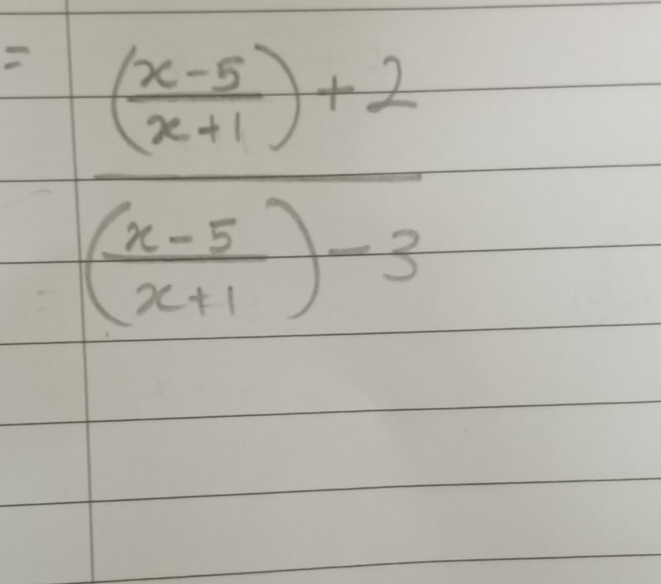 = (x-5
x+1) + 2
(x-5
x+1) - 3